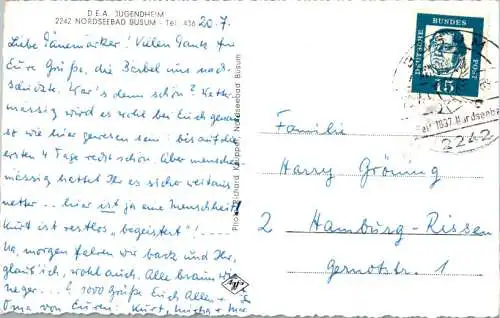 D.E.A. JUGENDHEIM
2242 NORDSEEBAD BÜSUM - Tel. 436
20.7.
Liebe Dänemärker! Vielen Dank für
Eure Grüße, die Bärbel uns nach-
schickte. War's denn schön? Wetter-
mässig wird es wohl bei Euch gewesen
ist wie hier gewesen sein: bis auf die
ersten 4 Tage recht schön. Aber menschen
mässig hattet Ihr es sicher weitaus
netter.. hier ist ja eine Menschheit!
Kurt ist restlos "begeistert"!
Na, morgen fahren wir back und Ihr,
glaub' ich, wohl auch. Alle braun wie
neger. 1000 Grüße Euch Allen +
Oma von Euren: Kurt,
Photo: Richard Knüppel, Nordseebad Büsum
DEUTSCHE BUNDESPOST
15
1837 Nordseebad
2242
Familie
Harry Gröning
2 Hamburg-Rissen
Gernotstr. 1